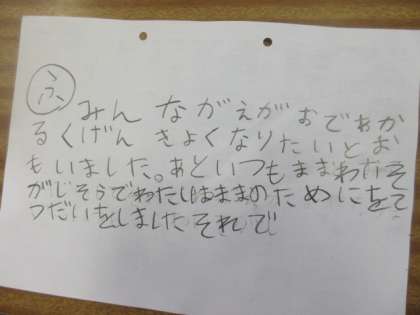 ふ
みんながえがおであか
るくげんきよくなりたいとお
もいました。あといつもままわいそ
がじそうでわたしはままのためにをて
つだいをしましたそれで